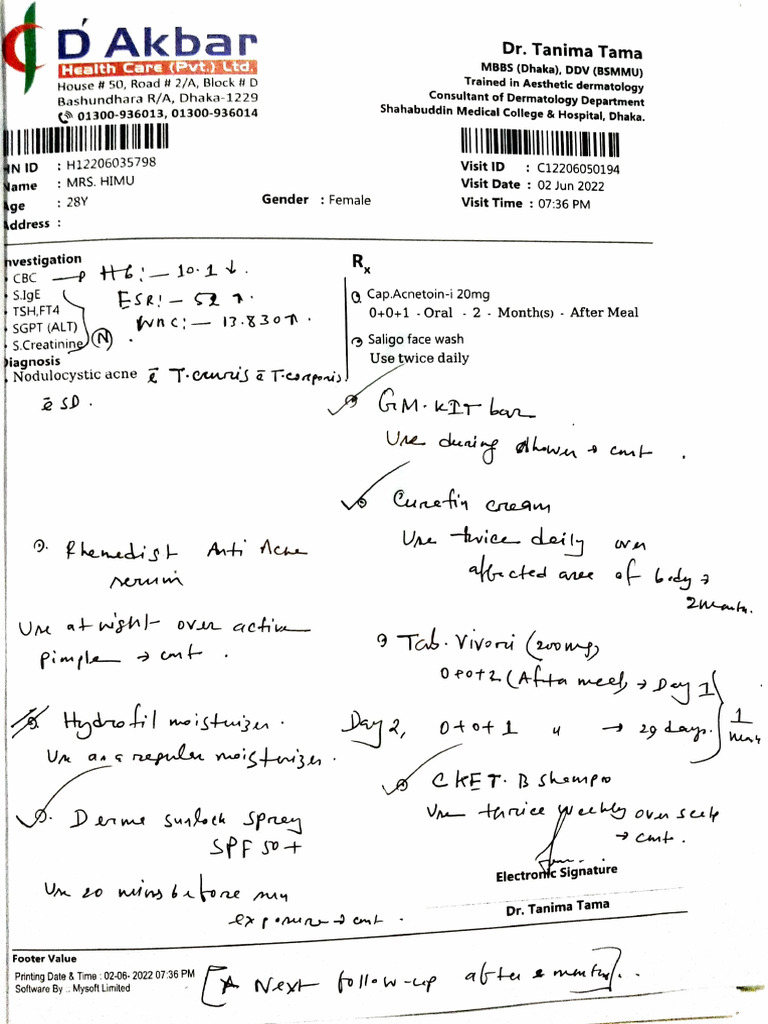 D'Akbar
Health Care (Pvt.) Ltd.
House # 50, Road # 2/A, Block # D
Bashundhara R/A, Dhaka-1229
01300-936013, 01300-936014
Dr. Tanima Tama
MBBS (Dhaka), DDV (BSMMU)
Trained in Aesthetic dermatology
Consultant of Dermatology Department
Shahabuddin Medical College & Hospital, Dhaka.
HN ID : H12206035798
Name : MRS. HIMU
Age : 28Y
Gender : Female
Address :
Visit ID : C12206050194
Visit Date : 02 Jun 2022
Visit Time : 07:36 PM
Investigation
CBC → Hb:- 10.1↓.
S.IgE ESR:- 52↑.
TSH,FT4 WBC:- 13.830↑
SGPT (ALT)
S.Creatinine (N).
Diagnosis
Nodulocystic acne c̄ T.cruris c̄ T.corporis
c̄ SD.
Rx
Cap.Acnetoin-i 20mg
0+0+1 - Oral - 2 - Month(s) - After Meal
Saligo face wash
Use twice daily
GM-KIT bar
Use during shower → cont.
Curefin cream
Use twice daily over
affected area of body →
2 months.
Tab. Vivori (200mg)
0+0+2 (After meal) → Day 1
Day 2, 0+0+1 " → 29 days.
1
CKET-B shampoo
Use thrice weekly over scalp
→ cont.
Rhemedist Anti Acne
serum
Use at night over active
pimple → cont.
Hydrofil moisturizer.
Use as a regular moisturizer.
Derme sunlock spray
SPF 50+
Use 20 mins before sun
exposure → cont.
Electronic Signature
Dr. Tanima Tama
Footer Value
Printing Date & Time : 02-06- 2022 07:36 PM
Software By .: Mysoft Limited
Next follow-up after